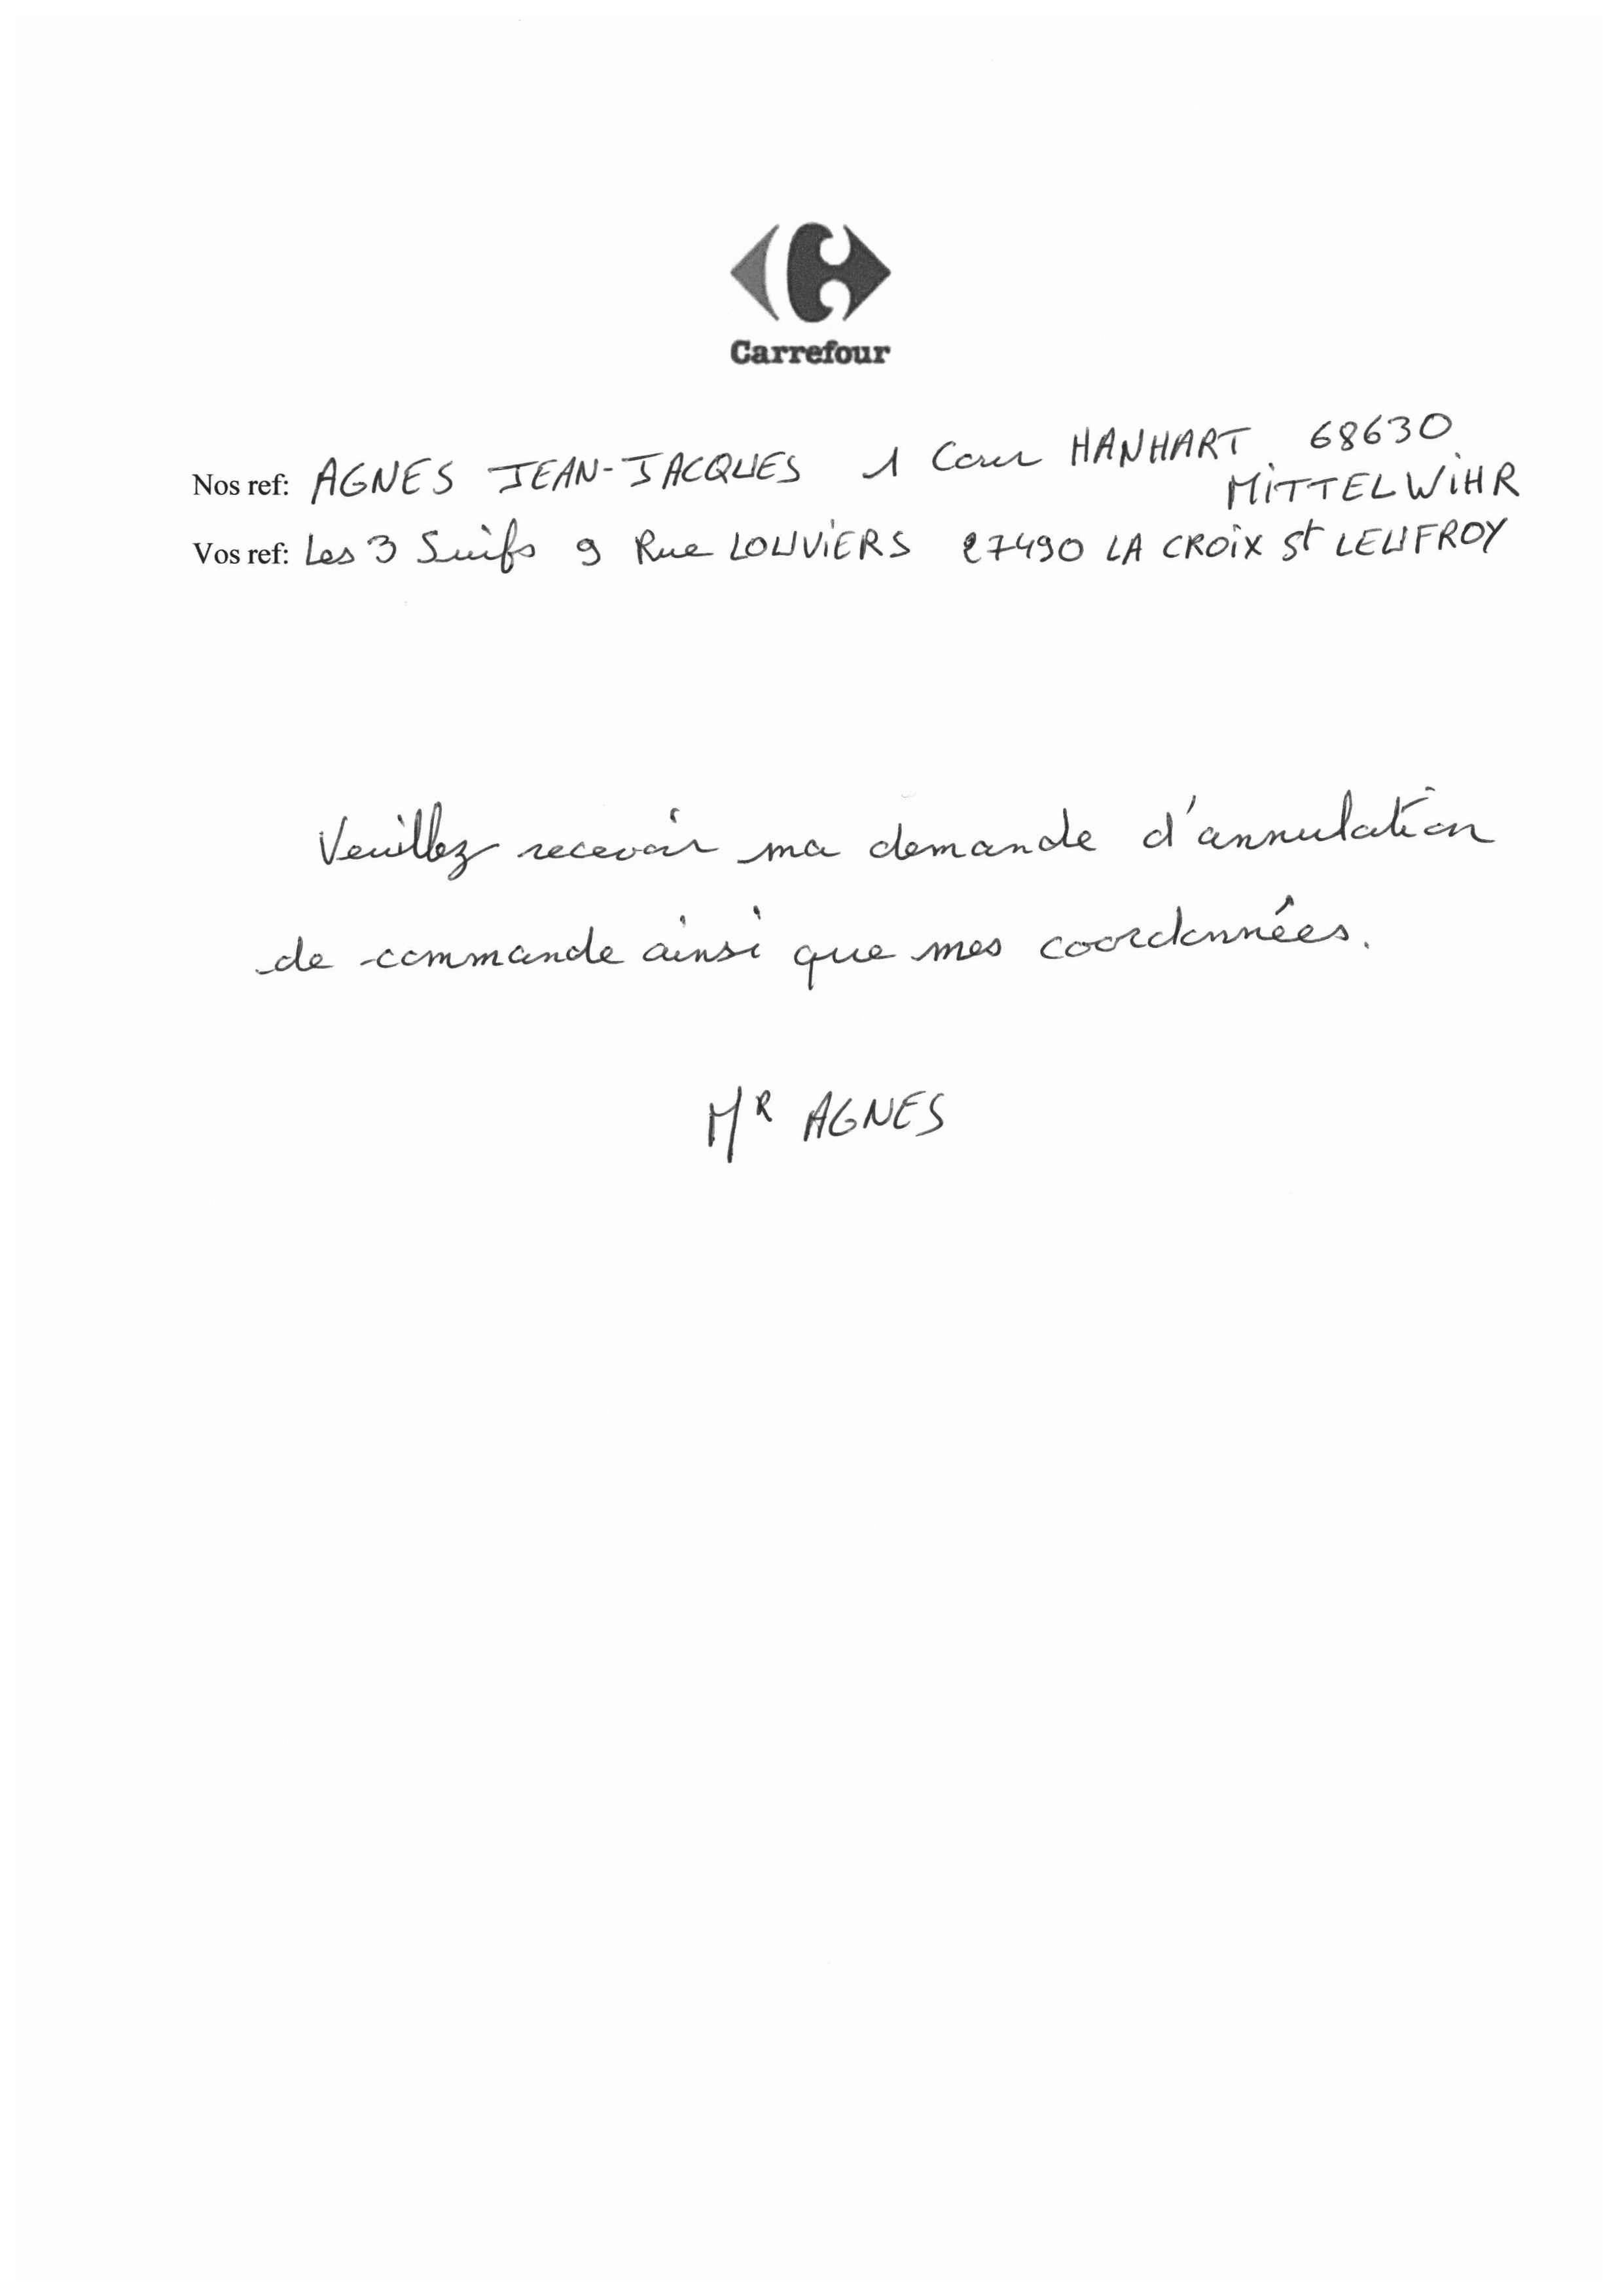 Carrefour
Nos ref: AGNES JEAN-JACQUES 1 Cour HANHART 68630
MITTELWIHR
Vos ref: Les 3 Suifs 9 Rue LOUVIERS 27490 LA CROIX St LEUFROY
Veuillez recevoir ma demande d'annulation
de commande ainsi que mes coordonnées.
MR AGNES